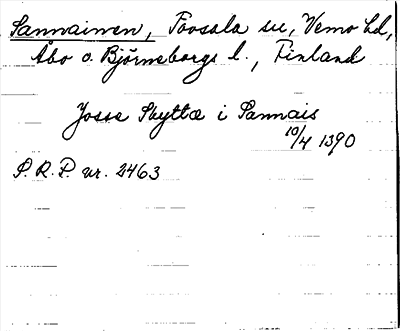 Sannainen, Tövsala sn, Vemo hd,
Åbo o. Björneborgs l., Finland
Josse Skyttæ i Sannais
10/4 1390
S.R.P. nr. 2463